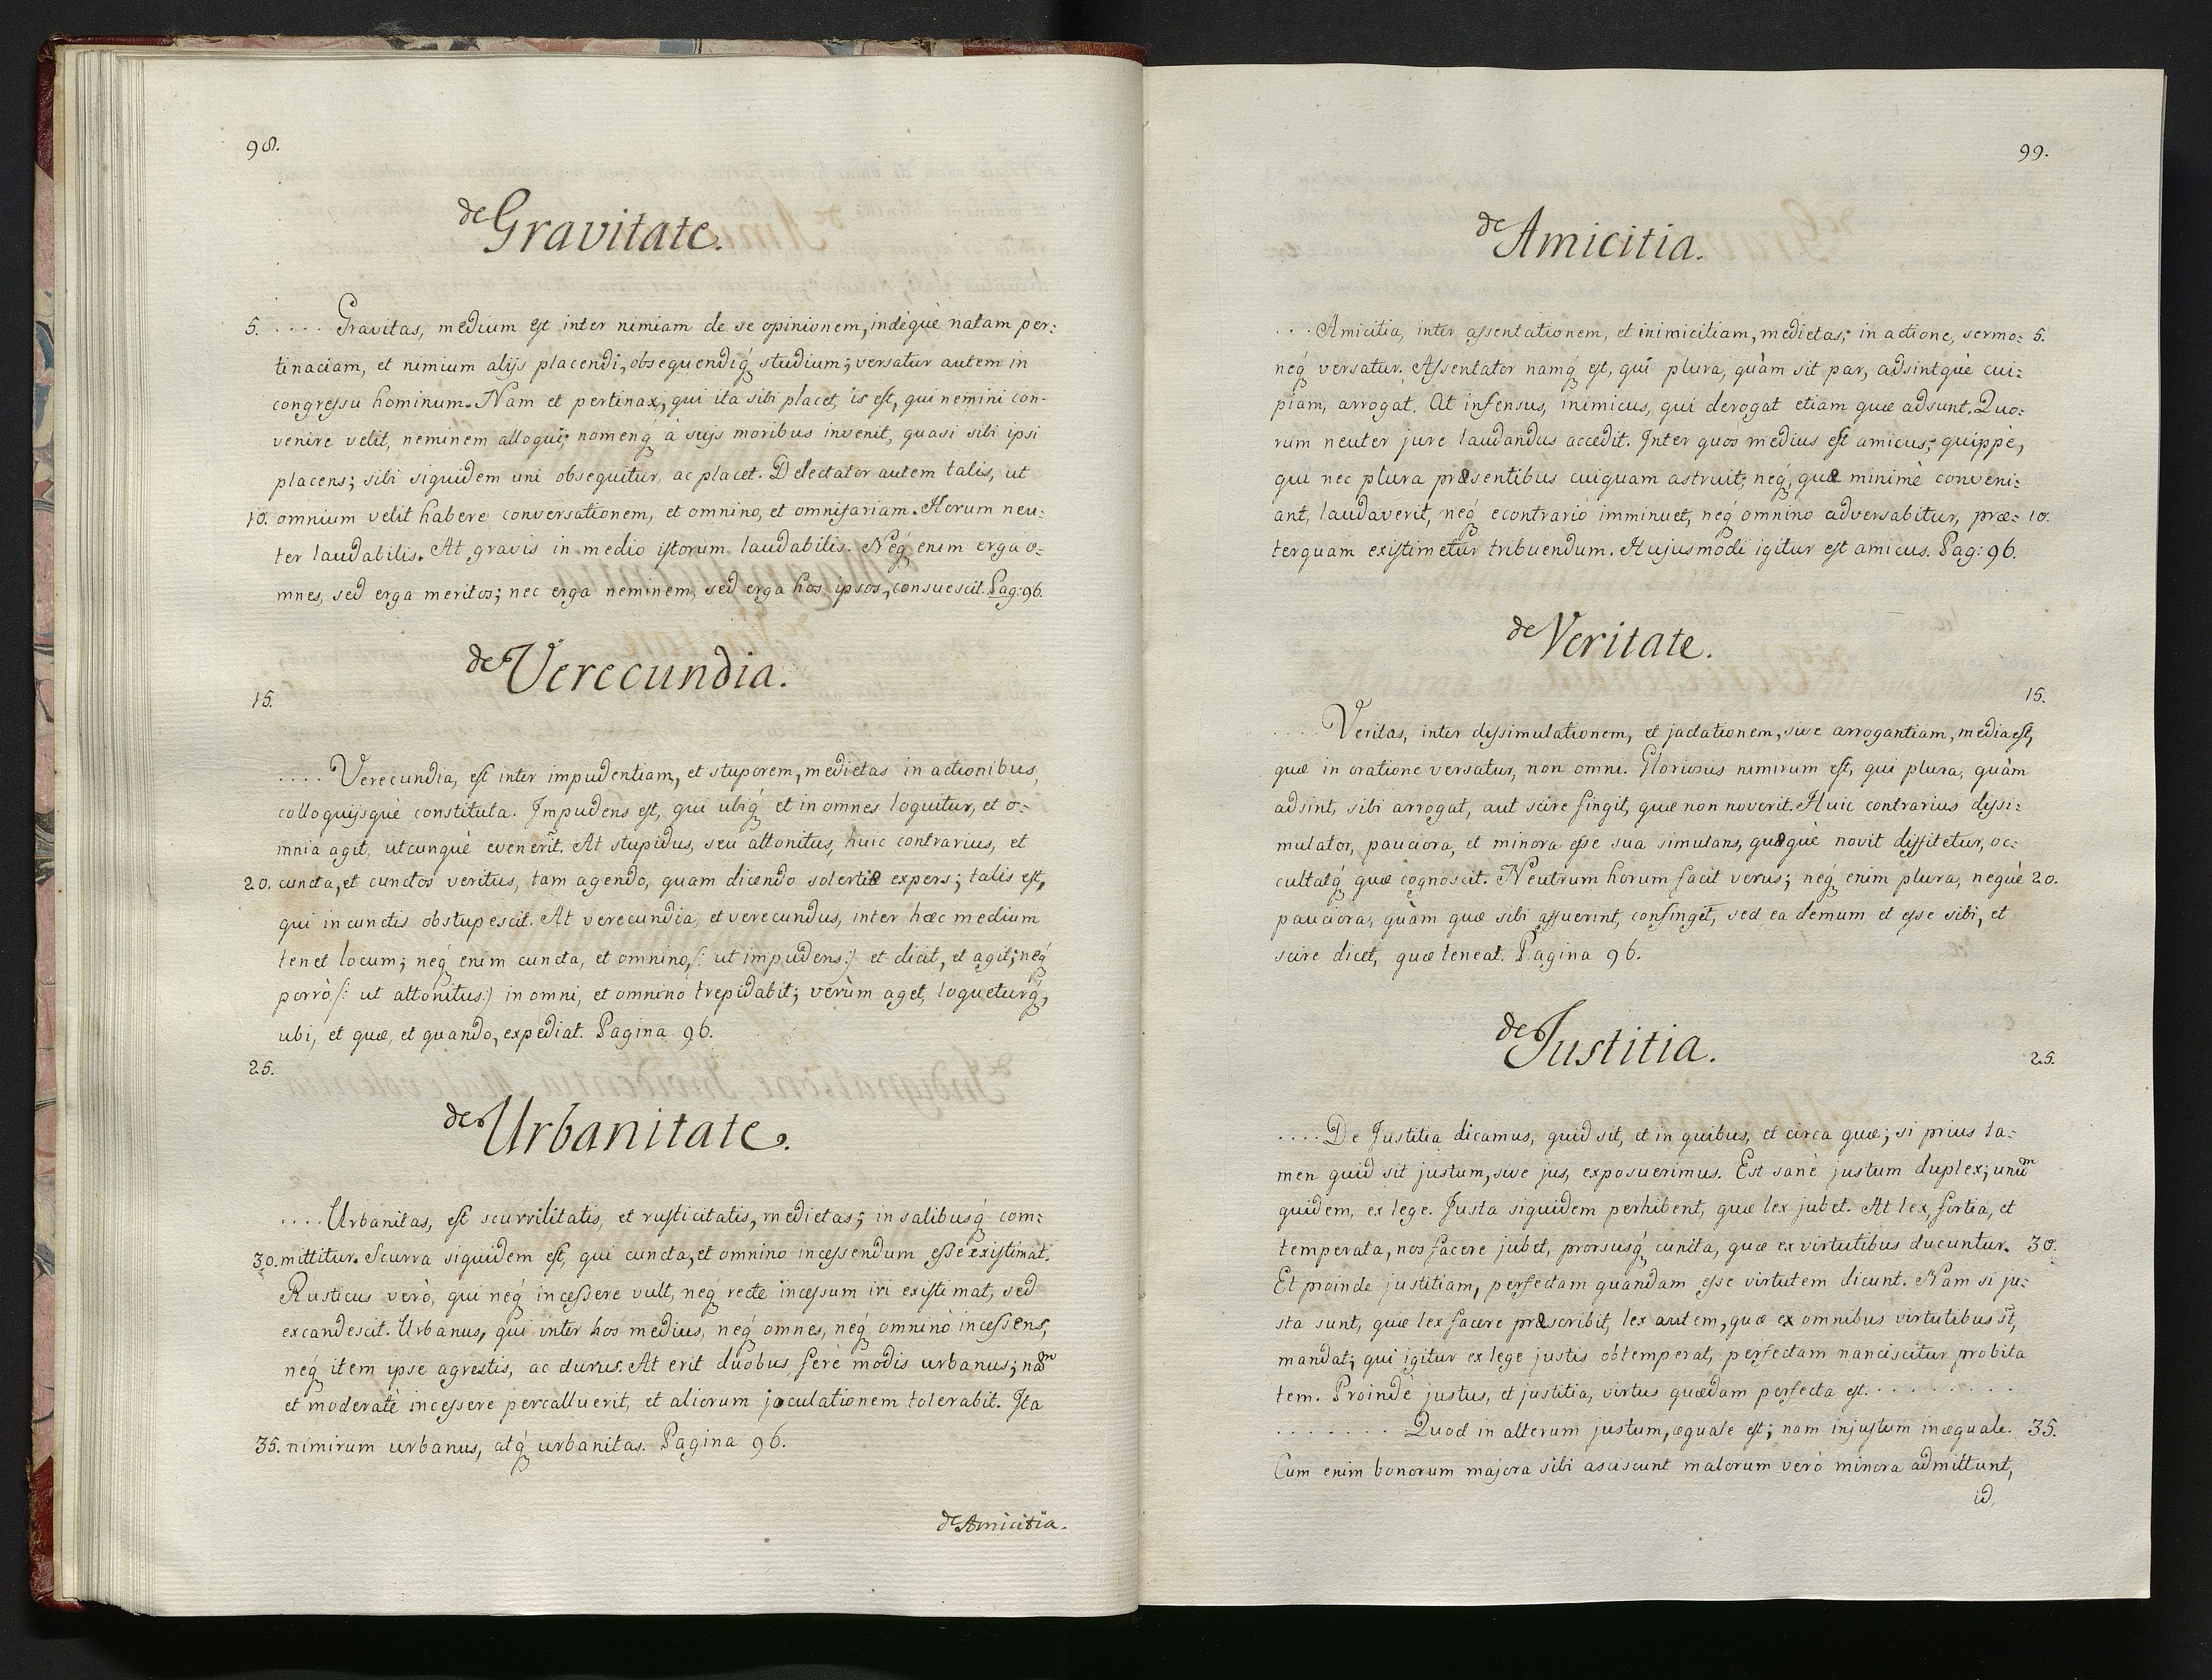 98.
de Gravitate.
5. .... Gravitas, medium est inter nimiam de se opinionem, indéquè natam per:
tinaciam, et nimium alijs placendi, obsequendiq́ studium; versatur autem in
congressu hominum. Nam et pertinax, qui ita sibi placet, is est, qui nemini con-
venire velit, neminem alloqui; nomenq́ à suis moribus invenit, quasi sibi ipsi
placens; sibi siquidem uni obsequitur, ac placet. Delectator autem talis, ut
10. omnium velit habere conversationem, et omnino, et omnifariam. Horum neu:
ter laudabilis. At gravis in medio istorum laudabilis. Neq́ enim erga o-
mnes, sed erga meritos; nec erga neminem, sed erga hos ipsos, consuescit. Pag: 96.
de Verecundia.
15.
.... Verecundia, est inter impudentiam, et stuporem, medietas in actionibus,
colloquijsquè constituta. Impudens est, qui ubiq́ et in omnes loquitur, et o-
mnia agit, utcunquè evenerit. At stupidus, seu attonitus, huic contrarius, et
20. cuncta, et cunctos veritus, tam agendo, quam dicendo solertiæ expers; talis est,
qui in cunctis obstupescit. At verecundia, et verecundus, inter hæc medium
tenet locum; neq́ enim cuncta, et omnino, (: ut impudens :) et dicit, et agit; neq́
porrò (: ut attonitus :) in omni, et omnino trepidabit; verùm aget, loqueturq́,
ubi, et quæ, et quando, expediat. Pagina 96.
25.
de Urbanitate.
.... Urbanitas, est scurrilitatis, et rusticitatis, medietas; in salibusq́ com:
30. mittitur. Scurra siquidem est, qui cuncta, et omnino incessendum esse existimat.
Rusticus verò, qui neq́ incessere vult, neq́ recte incessum iri existimat, sed
excandescit. Urbanus, qui inter hos medius, neq́ omnes, neq́ omninò incessens,
neq́ item ipse agrestis, ac durus. At erit duobus ferè modis urbanus; nam
et moderatè incessere percalluerit, et aliorum joculationem tolerabit. Ita
35. nimirum urbanus, atq́ urbanitas. Pagina 96.
de Amicitia.
99.
de Amicitia.
... Amicitia, inter assentationem, et inimicitiam, medietas; in actione, sermo: 5.
neq́ versatur. Assentator namq́ est, qui plura, quàm sit par, adsintquè cui:
piam, arrogat. At infensus, inimicus, qui derogat etiam quæ adsunt. Quo:
rum neuter jure laudandus accedit. Inter quos medius est amicus; quippè,
qui nec plura præsentibus cuiquam astruit; neq́, quæ minimè conveni:
ant, laudaverit, neq́ econtrariò imminuet, neq́ omnino adversabitur, præ- 10.
terquam existimetur tribuendum. Hujusmodi igitur est amicus. Pag: 96.
de Veritate.
15.
.... Veritas, inter dissimulationem, et jactationem, sive arrogantiam, media est,
quæ in oratione versatur, non omni. Gloriosus nimirum est, qui plura, quàm
adsint, sibi arrogat, aut scire fingit, quæ non noverit. Huic contrarius dissi:
mulator, pauciora, et minora esse sua simulans, quæquè novit diffitetur, oc:
cultatq́ quæ cognoscit. Neutrum horum facit verus; neq́ enim plura, nequè 20.
pauciora, quàm quæ sibi assuerint, confinget, sed ea demum et esse sibi, et
scire dicet, quæ teneat. Pagina 96.
de Justitia.
25.
.... De Justitia dicamus, quid sit, et in quibus, et circa quæ; si prius ta:
men quid sit justum, sive jus, exposuerimus. Est sanè justum duplex; unum
quidem, ex lege. Justa siquidem perhibent, quæ lex jubet. At lex, fortia, et
temperata, nos facere jubet, prorsusq́ cuncta, quæ ex virtutibus ducuntur. 30.
Et proinde justitiam, perfectam quandam esse virtutem dicunt. Nam si ju:
sta sunt, quæ lex facere præscribit, lex autem, quæ ex omnibus virtutibus st̄,
mandat; qui igitur ex lege justis obtemperat, perfectam nanciscitur probita
tem. Proindè justus, et justitia, virtus quædam perfecta est. .........
....... Quod in alterum justum, æquale est; nam injustum inæquale. 35.
Cum enim bonorum majora sibi asciscunt malorum verò minora admittunt,
id,